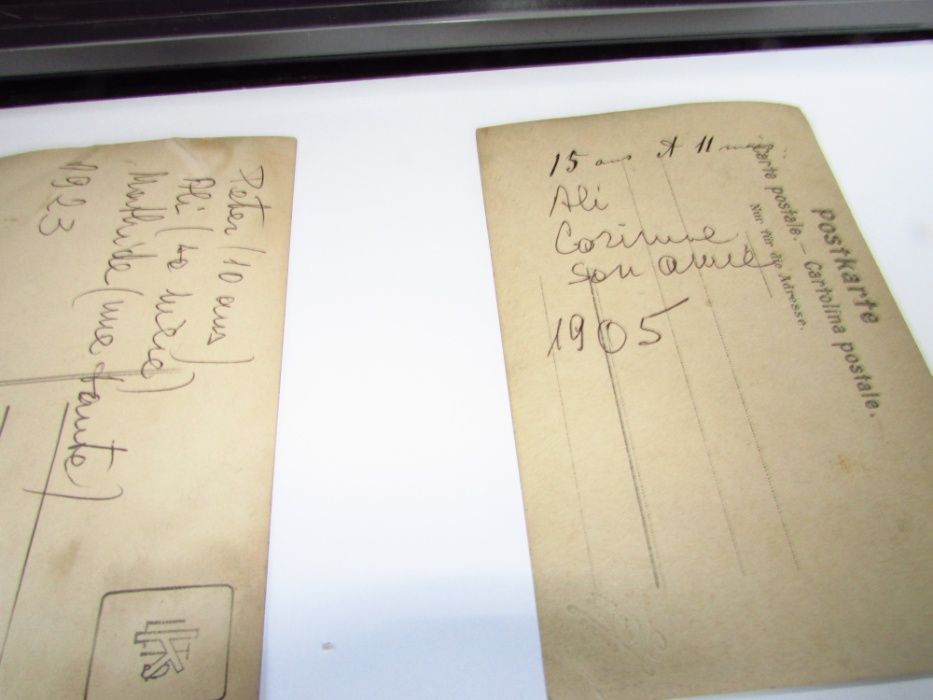 Peter (10 ans)
Ali (sa mère)
Mathilde (une tante)
1923
15 ans et 11 mois
Ali
Corinne
son amie
1905
Postkarte
Carte postale. – Cartolina postale.
Nur für die Adresse.